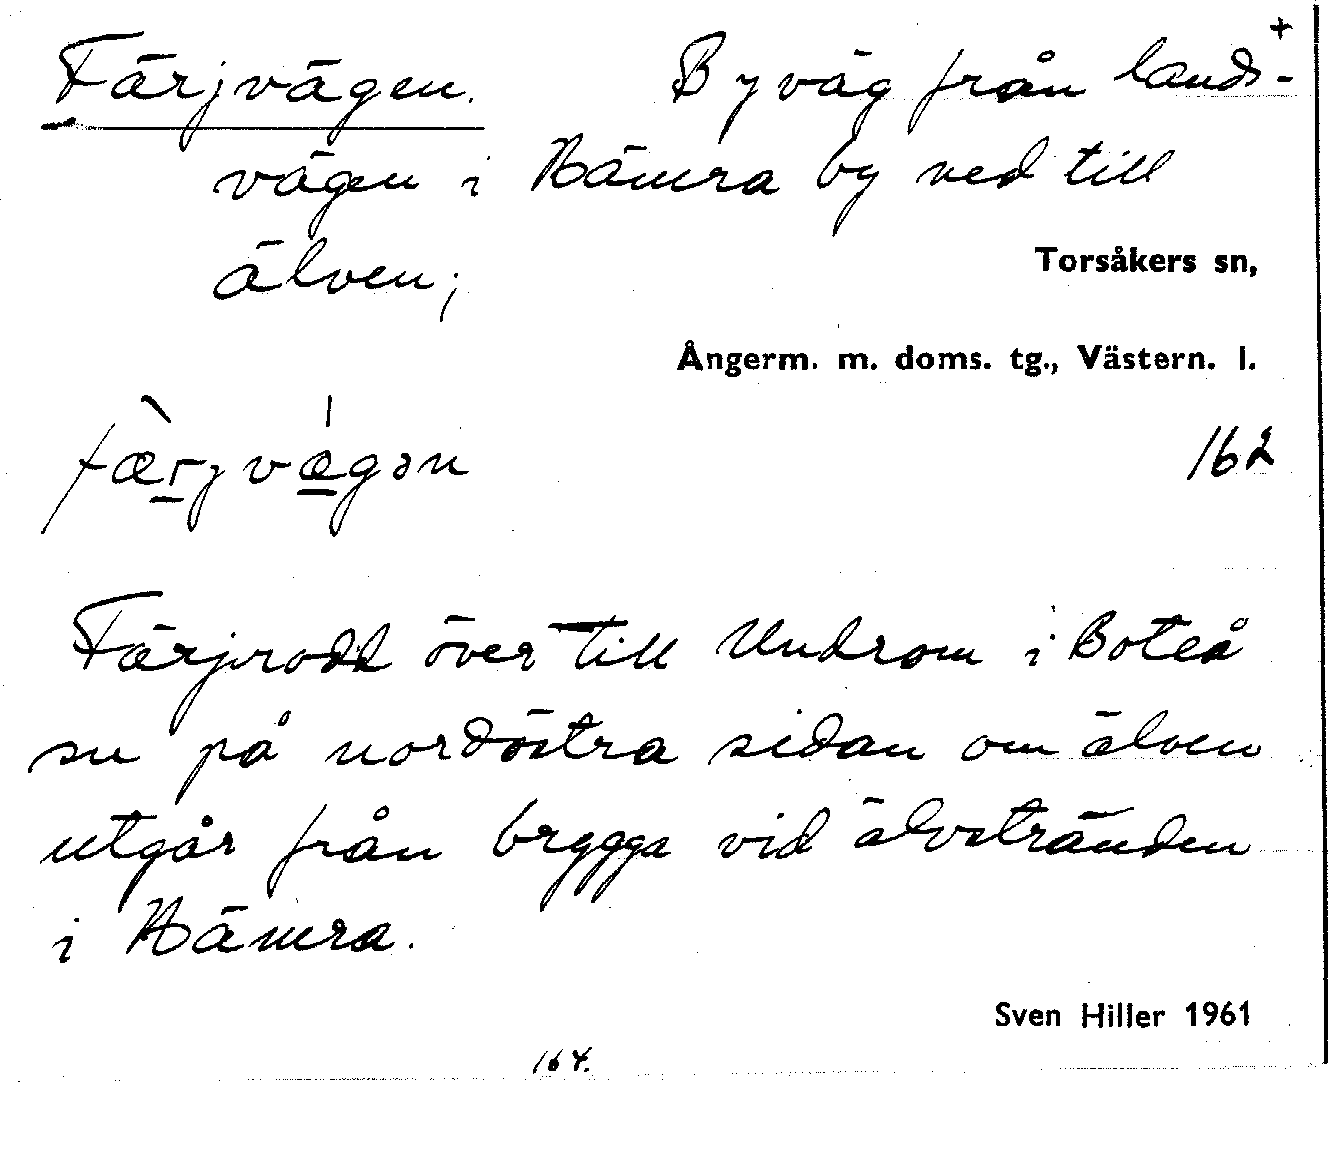 Färjvägen. Byväg från lands-
+
vägen i Hämra by ned till
älven;
Torsåkers sn,
Ångerm. m. doms. tg., Västern. l.
fæ̀rjvǽgən
162
Färjrodd över till Undrom i Boteå
sn på nordöstra sidan om älven
utgår från brygga vid älvstränden
i Hämra.
Sven Hiller 1961
164.